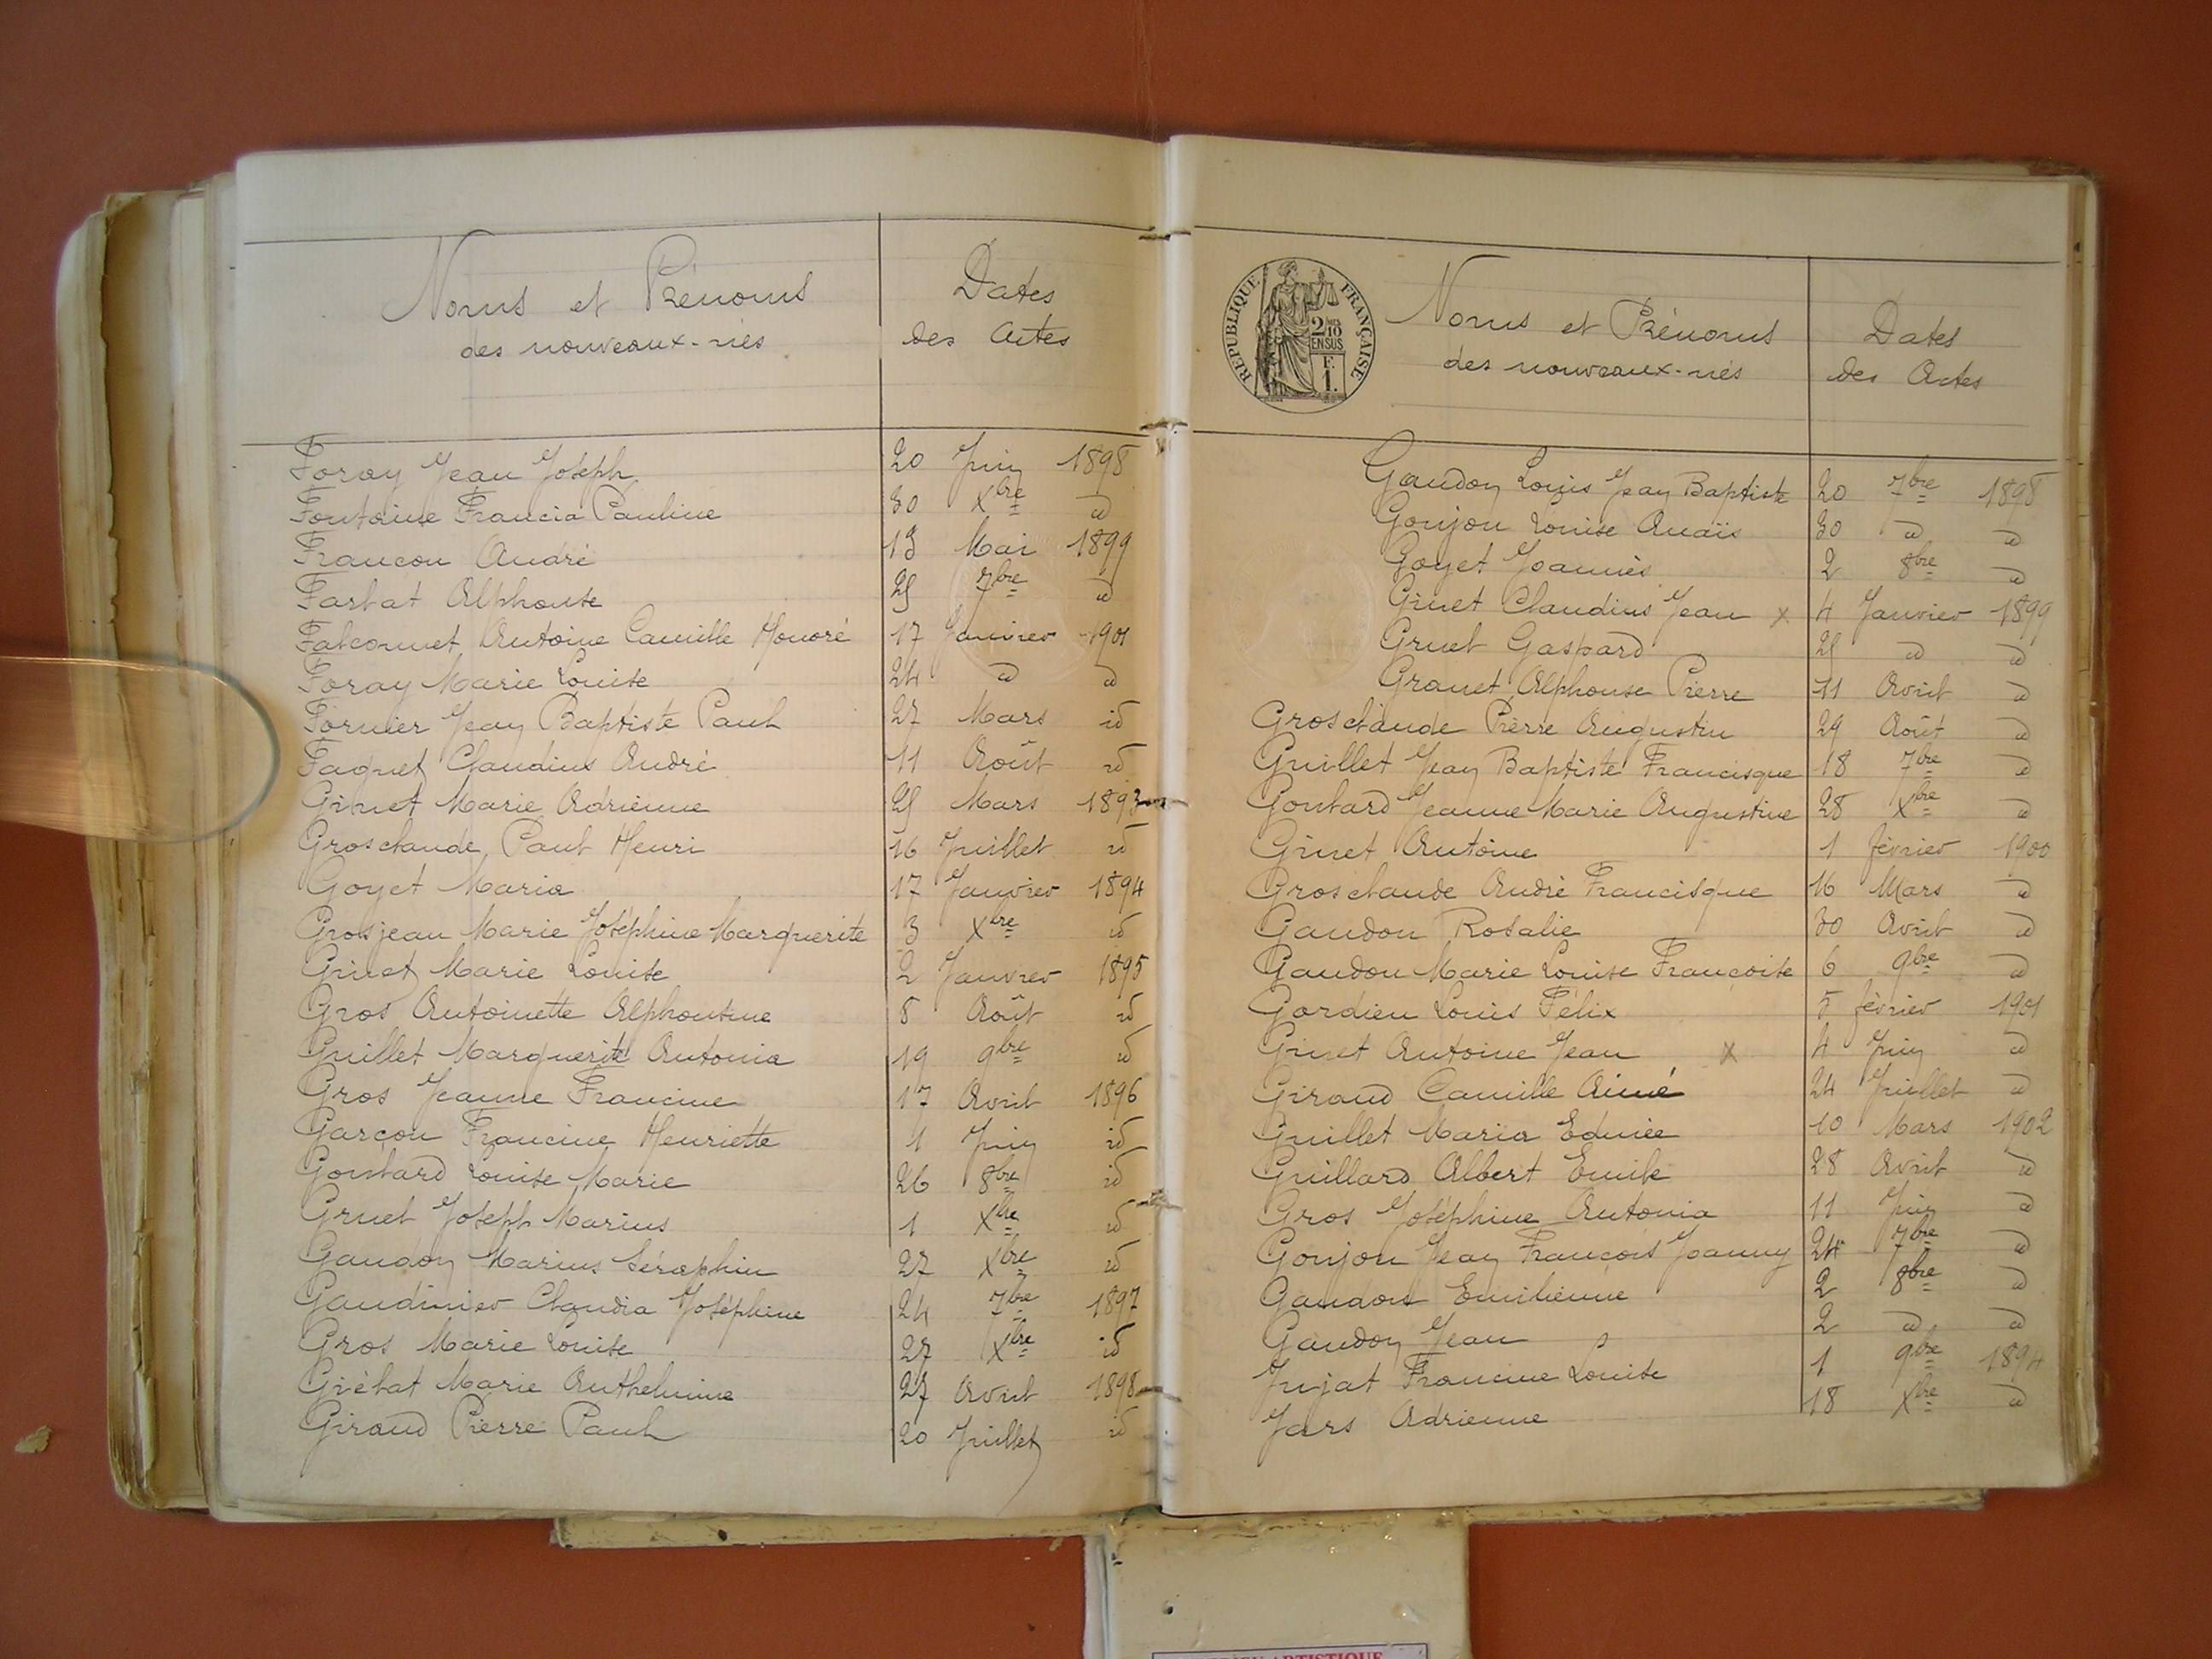 Noms et Prénoms
des nouveaux-nés
Dates
des Actes
Foray Jean Joseph 20 Juin 1898
Fontaine Francia Pauline 30 Xbre id
Francon André 13 Mai 1899
Farlat Alphonse 25 7bre id
Falconnet Antoine Camille Honoré 17 Janvier 1901
Foray Marie Louise 24 id id
Fornier Jean Baptiste Paul 27 Mars id
Faguet Claudius André 11 Août id
Ginet Marie Adrienne 25 Mars 1893
Grosclaude Paul Henri 16 Juillet id
Goyet Maria 17 Janvier 1894
Grosjean Marie Joséphine Marguerite 3 Xbre id
Ginet Marie Louise 2 Janvier 1895
Gros Antoinette Alphonsine 8 Août id
Guillet Marguerite Antonia 19 9bre id
Gros Jeanne Francine 17 Avril 1896
Garçon Francine Henriette 1 Juin id
Goutard Louise Marie 26 8bre id
Gruet Joseph Marius 1 Xbre id
Gaudon Marius Séraphin 27 Xbre id
Gaudinier Claudia Joséphine 24 7bre 1897
Gros Marie Louise 27 Xbre id
Grélat Marie Anthelmine 27 Avril 1898
Giraud Pierre Paul 20 Juillet id
RÉPUBLIQUE FRANÇAISE
2/10
EN SUS
F.
1.
Noms et Prénoms
des nouveaux-nés
Dates
des Actes
Gaudon Louis Jean Baptiste 20 7bre 1898
Goujon Louise Anaïs 30 id id
Goyet Joannès 2 8bre id
Ginet Claudius Jean x 4 Janvier 1899
Gruet Gaspard 25 id id
Granet Alphonse Pierre 11 Avril id
Grosclaude Pierre Augustin 29 Août id
Guillet Jean Baptiste Francisque 18 7bre id
Goutard Jeanne Marie Augustine 28 Xbre id
Ginet Antoine 1 février 1900
Grosclaude André Francisque 16 Mars id
Gaudon Rosalie 30 Avril id
Gaudon Marie Louise Françoise 6 9bre id
Gardien Louis Félix 5 février 1901
Ginet Antoine Jean x 4 Juin id
Giraud Camille Aimé 24 Juillet id
Guillet Maria Edmée 10 Mars 1902
Guillard Albert Emile 28 Avril id
Gros Joséphine Antonia 11 Juin id
Goujon Jean François Joanny 24 7bre id
Gaudon Emilienne 2 8bre id
Gaudon Jean 2 id id
Jujat Francine Louise 1 9bre 1894
Jars Adrienne 18 Xbre id